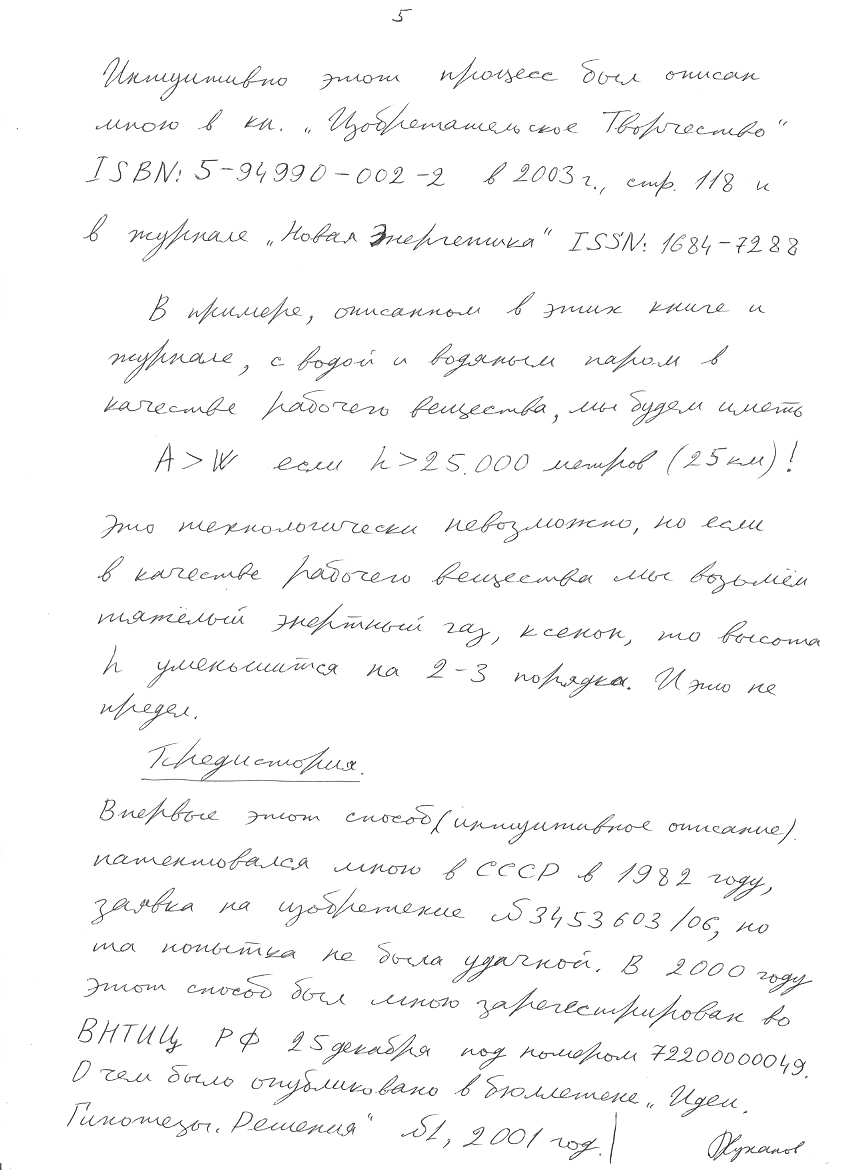 5
Интуитивно этот процесс был описан
мною в кн. „Изобретательское Творчество"
ISBN: 5-94990-002-2 в 2003 г., стр. 118 и
в журнале „Новая Энергетика" ISSN: 1684-7288
В примере, описанном в этих книге и
журнале, с водой и водяным паром в
качестве рабочего вещества, мы будем иметь
A > W если h > 25.000 метров (25 км)!
Это технологически невозможно, но если
в качестве рабочего вещества мы возьмём
тяжёлый энертный газ, ксенон, то высота
h уменьшится на 2-3 порядка. И это не
предел.
Предистория.
Впервые этот способ (интуитивное описание)
патентовался мною в СССР в 1982 году,
заявка на изобретение №3453603/06, но
та попытка не была удачной. В 2000 году
этот способ был мною зарегестрирован во
ВНТИЦ РФ 25 декабря под номером 72200000049.
О чем было опубликовано в бюллетене „Идеи.
Гипотезы. Решения" №1, 2001 год.